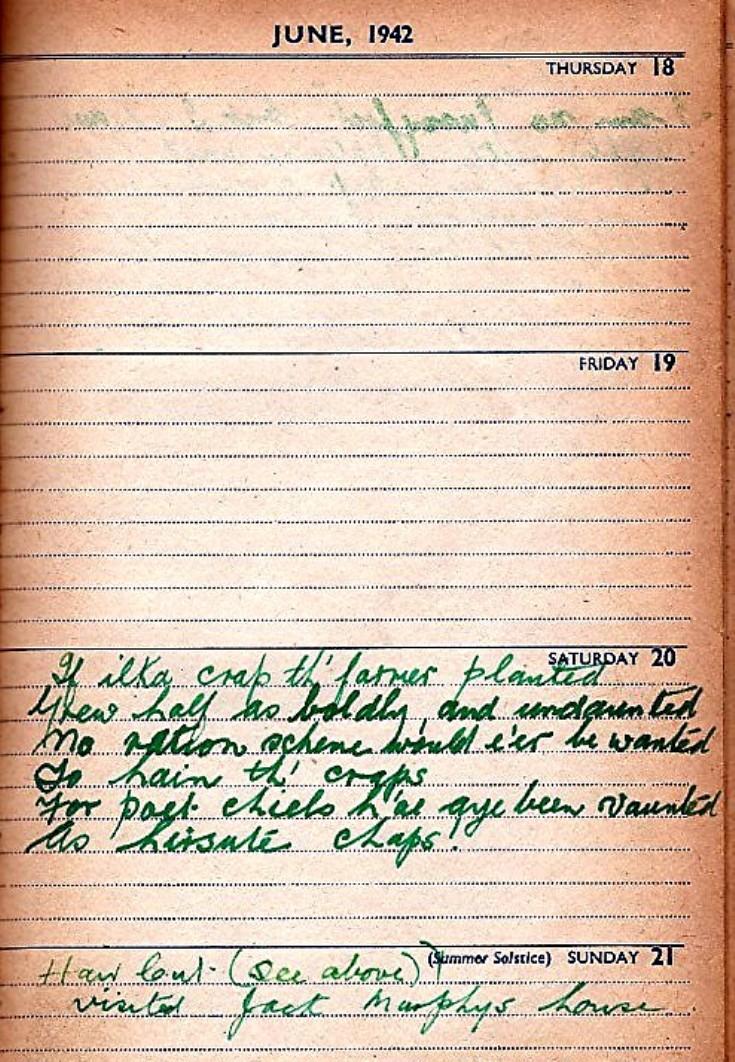 JUNE, 1942
THURSDAY 18
FRIDAY 19
SATURDAY 20
If ilka crap th' farmer planted
Grew half as boldly and undaunted
No ration scheme would e'er be wanted
To hain th' craps
For poet chiels h'ae aye been vaunted
As hirsute chaps!
(Summer Solstice) SUNDAY 21
Hair Cut (See above)!
visited Jack Murphys house